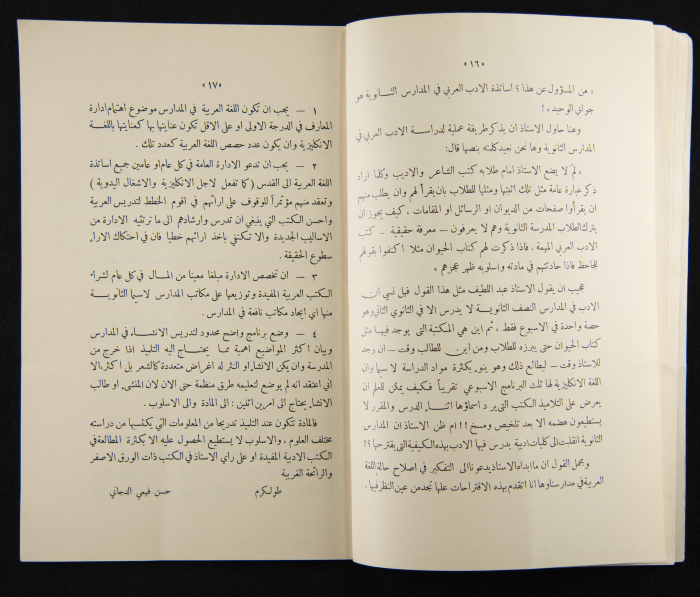 «١٦»
« من المسؤول عن هذا ؟ اساتذة الادب العربي في المدارس الثـــانوية هو
جوابي الوحيد » !
وهنا حاول الاستاذ ان يذكر طريقة عملية لدراسـة الادب العربي في
المدارس الثانوية وها نحن نعيد كلمته بنصها قال :
« لم لا يضع الاستاذ امام طلابه كتب الشاعر والاديب وكلما اراد
ذكر عبارة عامة مثل تلك اثبتها ومثلها للطلاب بان يقرأ لهم وان يطلب منهم
ان يقرأوا صفحات من الديوان او الرسائل او المقامات . كيف يجوز ان
يترك الطلاب المدرسة الثانوية وهم لا يعرفون — معرفة حقيقية — كتب
الادب العربي المهمة . فاذا ذكرت لهم كتاب الحيوان مثلا اكتفوا بقولهم
للجاحظ فاذا حادثتهم في مادته واسلوبه ظهر عجزهم »
عجيب ان يقول الاستاذ عبد اللطيف مثل هذا القول فهل نسي ان
الادب في المدارس النصف الثانويـــة لا يدرس الا في الثانوي الثاني وهو
حصة واحدة في الاسبوع فقط ، ثم اين هي المكتبة التى يوجد فيهـا مثل
كتاب الحيوان حتى يبرزه للطلاب ومن اين للطالب وقت — ان وجد
للاستاذ وقت — ليطالع ذلك وهو ينوء بكثرة مواد الدراسة لا سيما وان
اللغة الانكليزية لها ثلث البرنامج الاسبوعي تقريباً فكيف يمكن للمعلم ان
يعرض على التلاميذ الكتب التى يرد اسماؤها اثنـــاء الدرس والمقرر لا
يستطيعون هضمه الا بعد تلخيص ومسخ !!! ام ظن الاستاذ ان المدارس
الثانوية انقلبت الى كليات ادبية يدرس فيها الادب بهذه الكيفية التى يقترحها ؟!
ومجمل القول ان ما ابداه الاستاذ يدعونا الى التفكير في اصلاح حالة اللغة
العربية في مدارسنا وها انا اتقدم بهذه الاقتراحات علها تجد من عين النظر فيها .
«١٧»
١ — يجب ان تكون اللغة العربية في المدارس موضوع اهتمام ادارة
المعارف في الدرجة الاولى او على الاقل تكون عنايتها بها كعنايتها باللغـــة
الانكليزية وان يكون عدد حصص اللغة العربية كعدد تلك .
٢ — يجب ان تدعو الادارة العامة في كل عام او عامين جميع اساتذة
اللغة العربية الى القدس ( كما تفعل لاجل الانكليزية والاشغال اليدوية )
وتعقد منهم مؤتمراً للوقوف على ارائهم في اقوم الخطط لتدريس العربية
واحسن الكتب التي ينبغي ان تدرس وارشادهم الى ما ترتئيه الادارة من
الاساليب الجديدة والا تكتفي باخذ ارائهم خطيا فان في احتكاك الاراء
سطوع الحقيقة .
٣ — ان تخصص الادارة مبلغا معينا من المـــال في كل عام لشراء
الكتب العربية المفيدة وتوزيعها على مكاتب المدارس لاسيما الثانويـــة
منها اي ايجاد مكاتب نافعة في المدارس .
٤ — وضع برنامج واضح محدود لتدريس الانشـــاء في المدارس
وبيان اكثر المواضيع اهمية مما يحتـــاج اليه التلميذ اذا خرج من
المدرسة وان يكن الانشاء او النثر له اغراض متعددة كالشعر بل اكثر ، الا
اني اعتقد انه لم يوضع لتعليمه طرق منظمة حتى الان لان المنشيء او طالب
الانشاء يحتاج الى امرين اثنين : الى المادة والى الاسلوب .
فالمادة تتكون عند التلميذ تدريجا من المعلومات التي يكتسبها من دراسته
مختلف العلوم ، والاسلوب لا يستطيع الحصول عليه الا بكثرة المطالعة في
الكتب الادبية المفيدة او على راي الاستاذ في الكتب ذات الورق الاصفر
والرائحة الغريبة
طولكرم حسن فهمي الدجاني